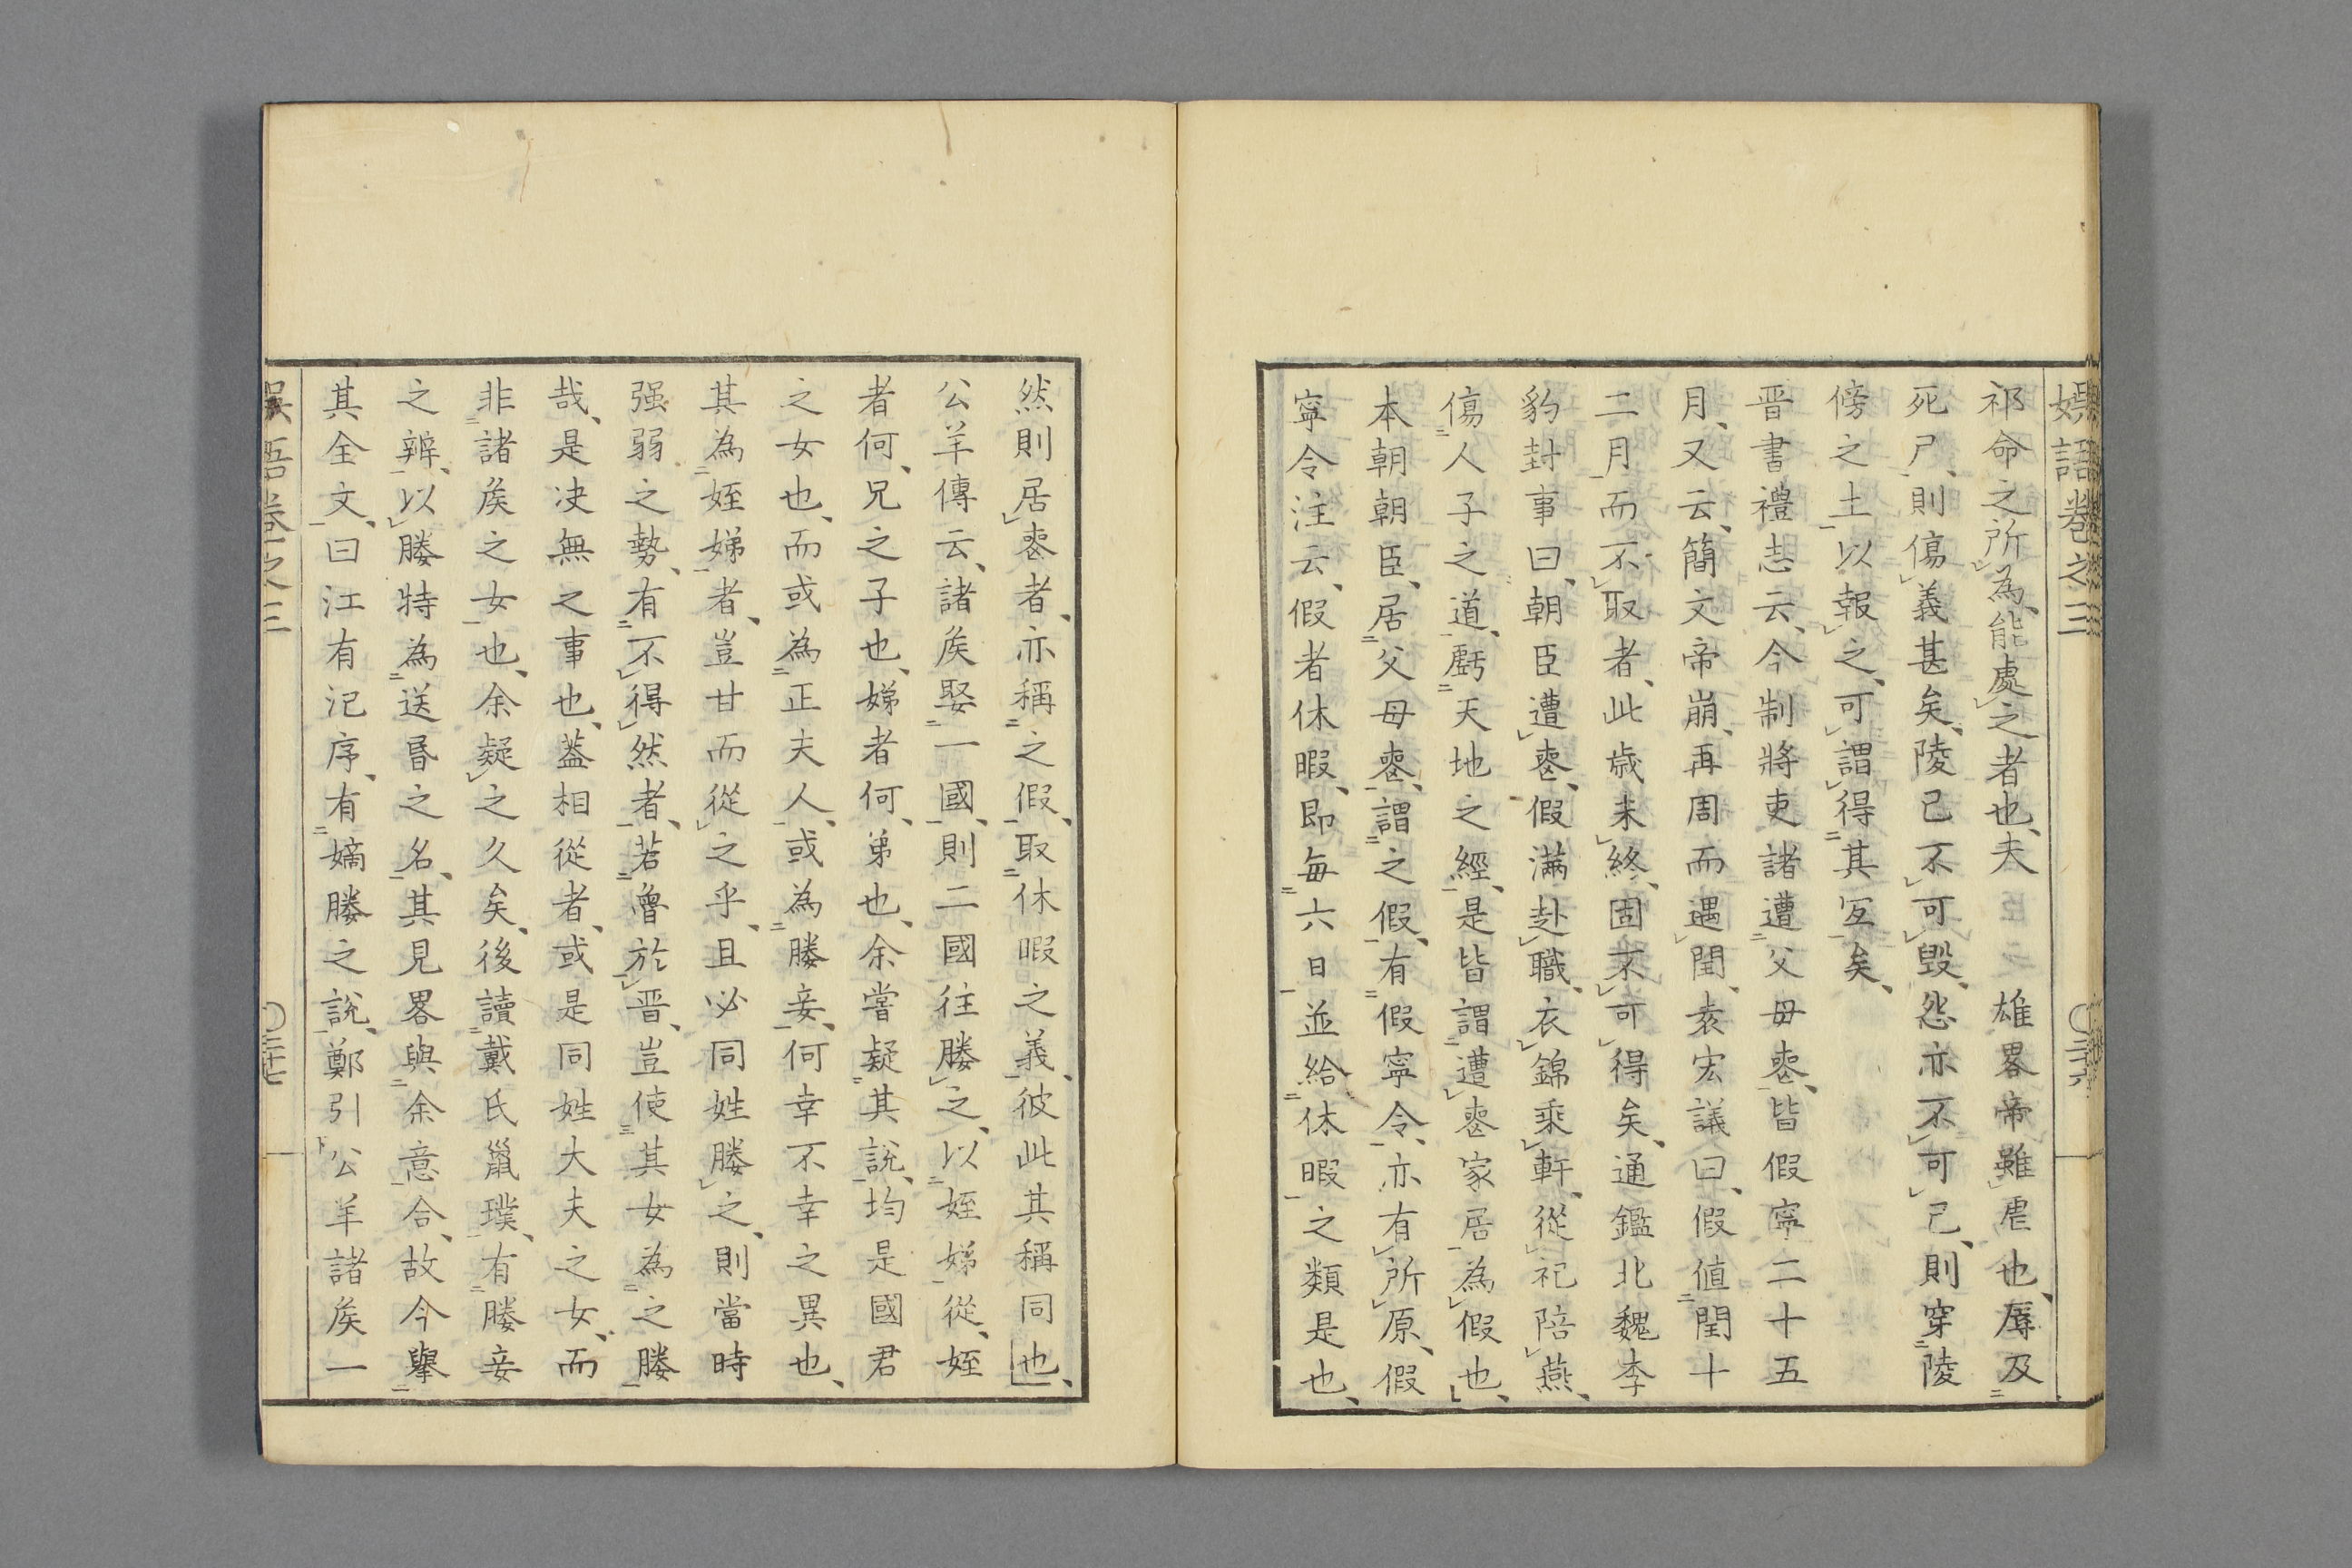 娯語卷之三
〇三十六
祁命之所為、能處之者也、夫雄畧帝雖虐也、辱及
死尸、則傷義甚矣、陵已不可毀、怨亦不可已、則穿陵
傍之土以報之、可謂得其冝矣、
晋書禮志云、今制將吏諸遭父母䘮、皆假寧二十五
月、又云、簡文帝崩、再周而遇閏、袁宏議曰、假値閏十
二月而不取者、此歳未終、固不可得矣、通鑑北魏李
豹封事曰、朝臣遭䘮、假満赴職、衣錦乘軒、從祀陪燕、
傷人子之道、虧天地之經、是皆謂遭䘮家居為假也、
本朝朝臣、居父母䘮、謂之假、有假寧令、亦有所原、假
寧令注云、假者休暇、即毎六日並給休暇之類是也、
然則居䘮者、亦稱之假、取休暇之義、彼此其稱同也、
公羊傳云、諸矦娶一國、則二國往媵之、以姪娣從、姪
者何、兄之子也、娣者何、弟也、余嘗疑其說、均是國君
之女也、而或為正夫人、或為媵妾、何幸不幸之異也、
其為姪娣者、豈甘而從之乎、且必同姓媵之、則當時
强弱之勢、有不得然者、若魯於晋、豈使其女為之媵
哉、是决無之事也、葢相從者、或是同姓大夫之女、而
非諸矦之女也、余疑之久矣、後讀戴氏鼠璞、有媵妾
之辨、以媵特為送昬之名、其見畧與余意合、故今擧
其全文、曰江有汜序、有嫡媵之說、鄭引公羊諸矦一
娯語卷之三
〇三十七